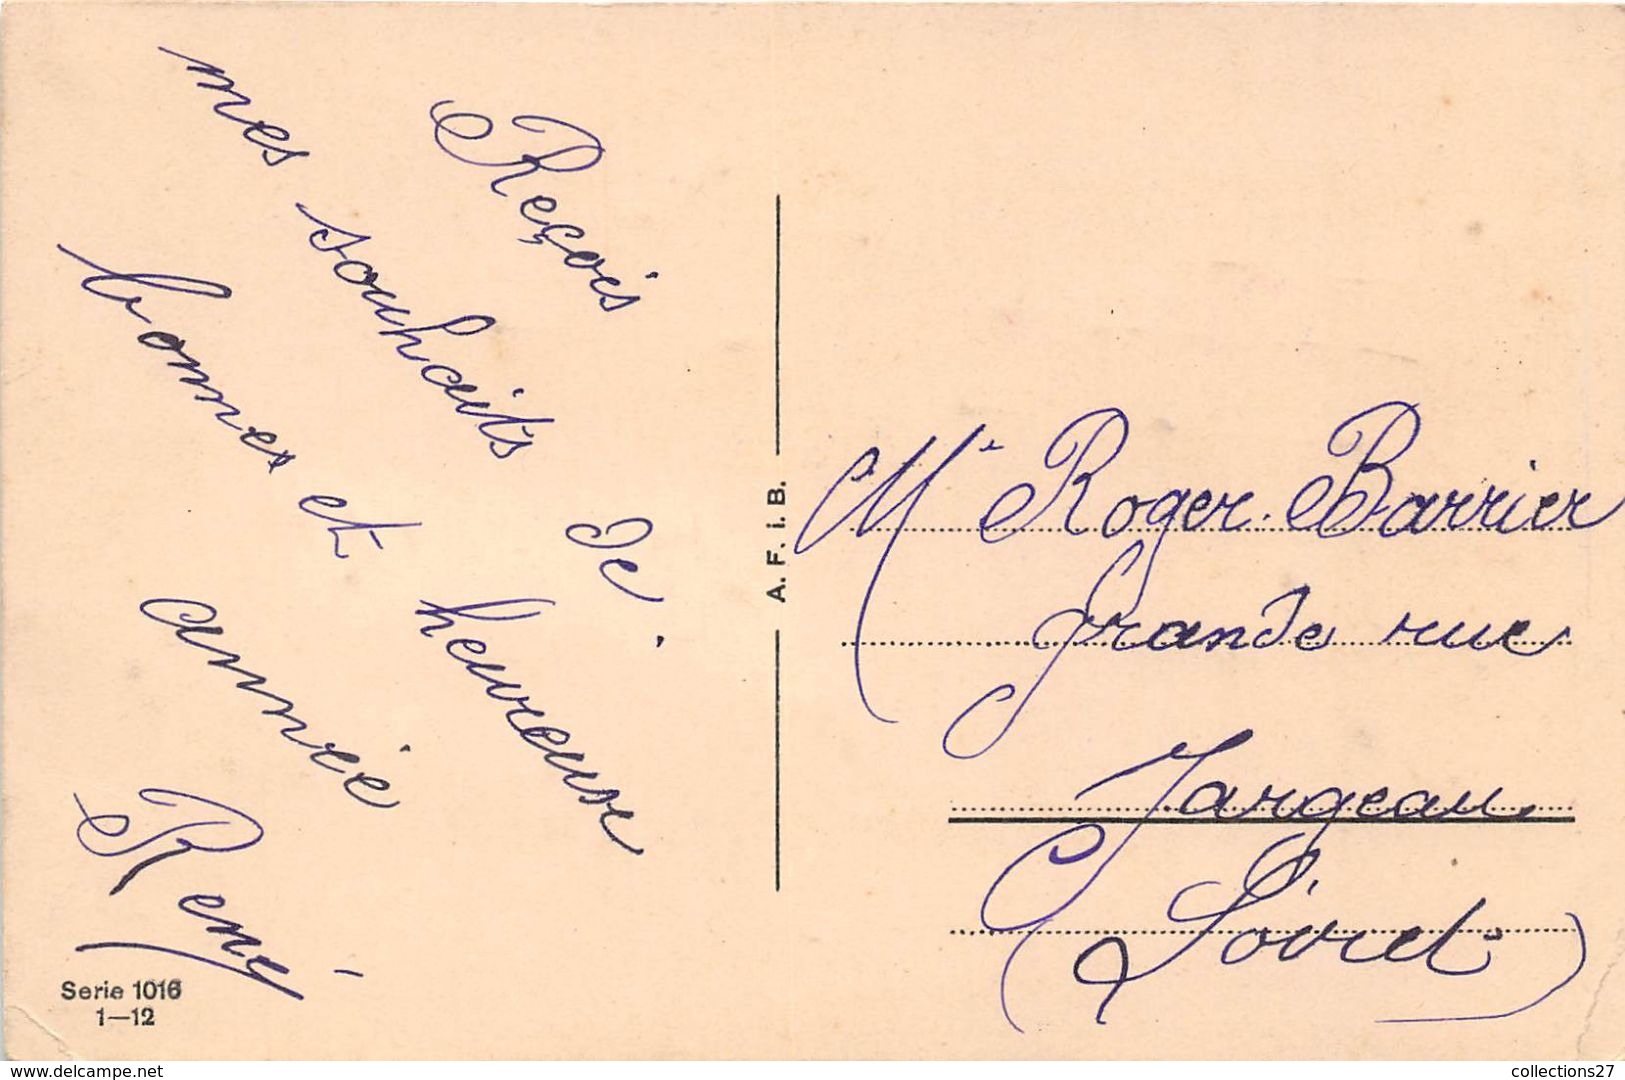 Reçois
mes souhaits de
bonne et heureuse
année
René
Serie 1016
1—12
A. F. I. B.
Mr Roger Barrier
grande rue
Jargeau
(Loiret)
delcampe.net
collections27